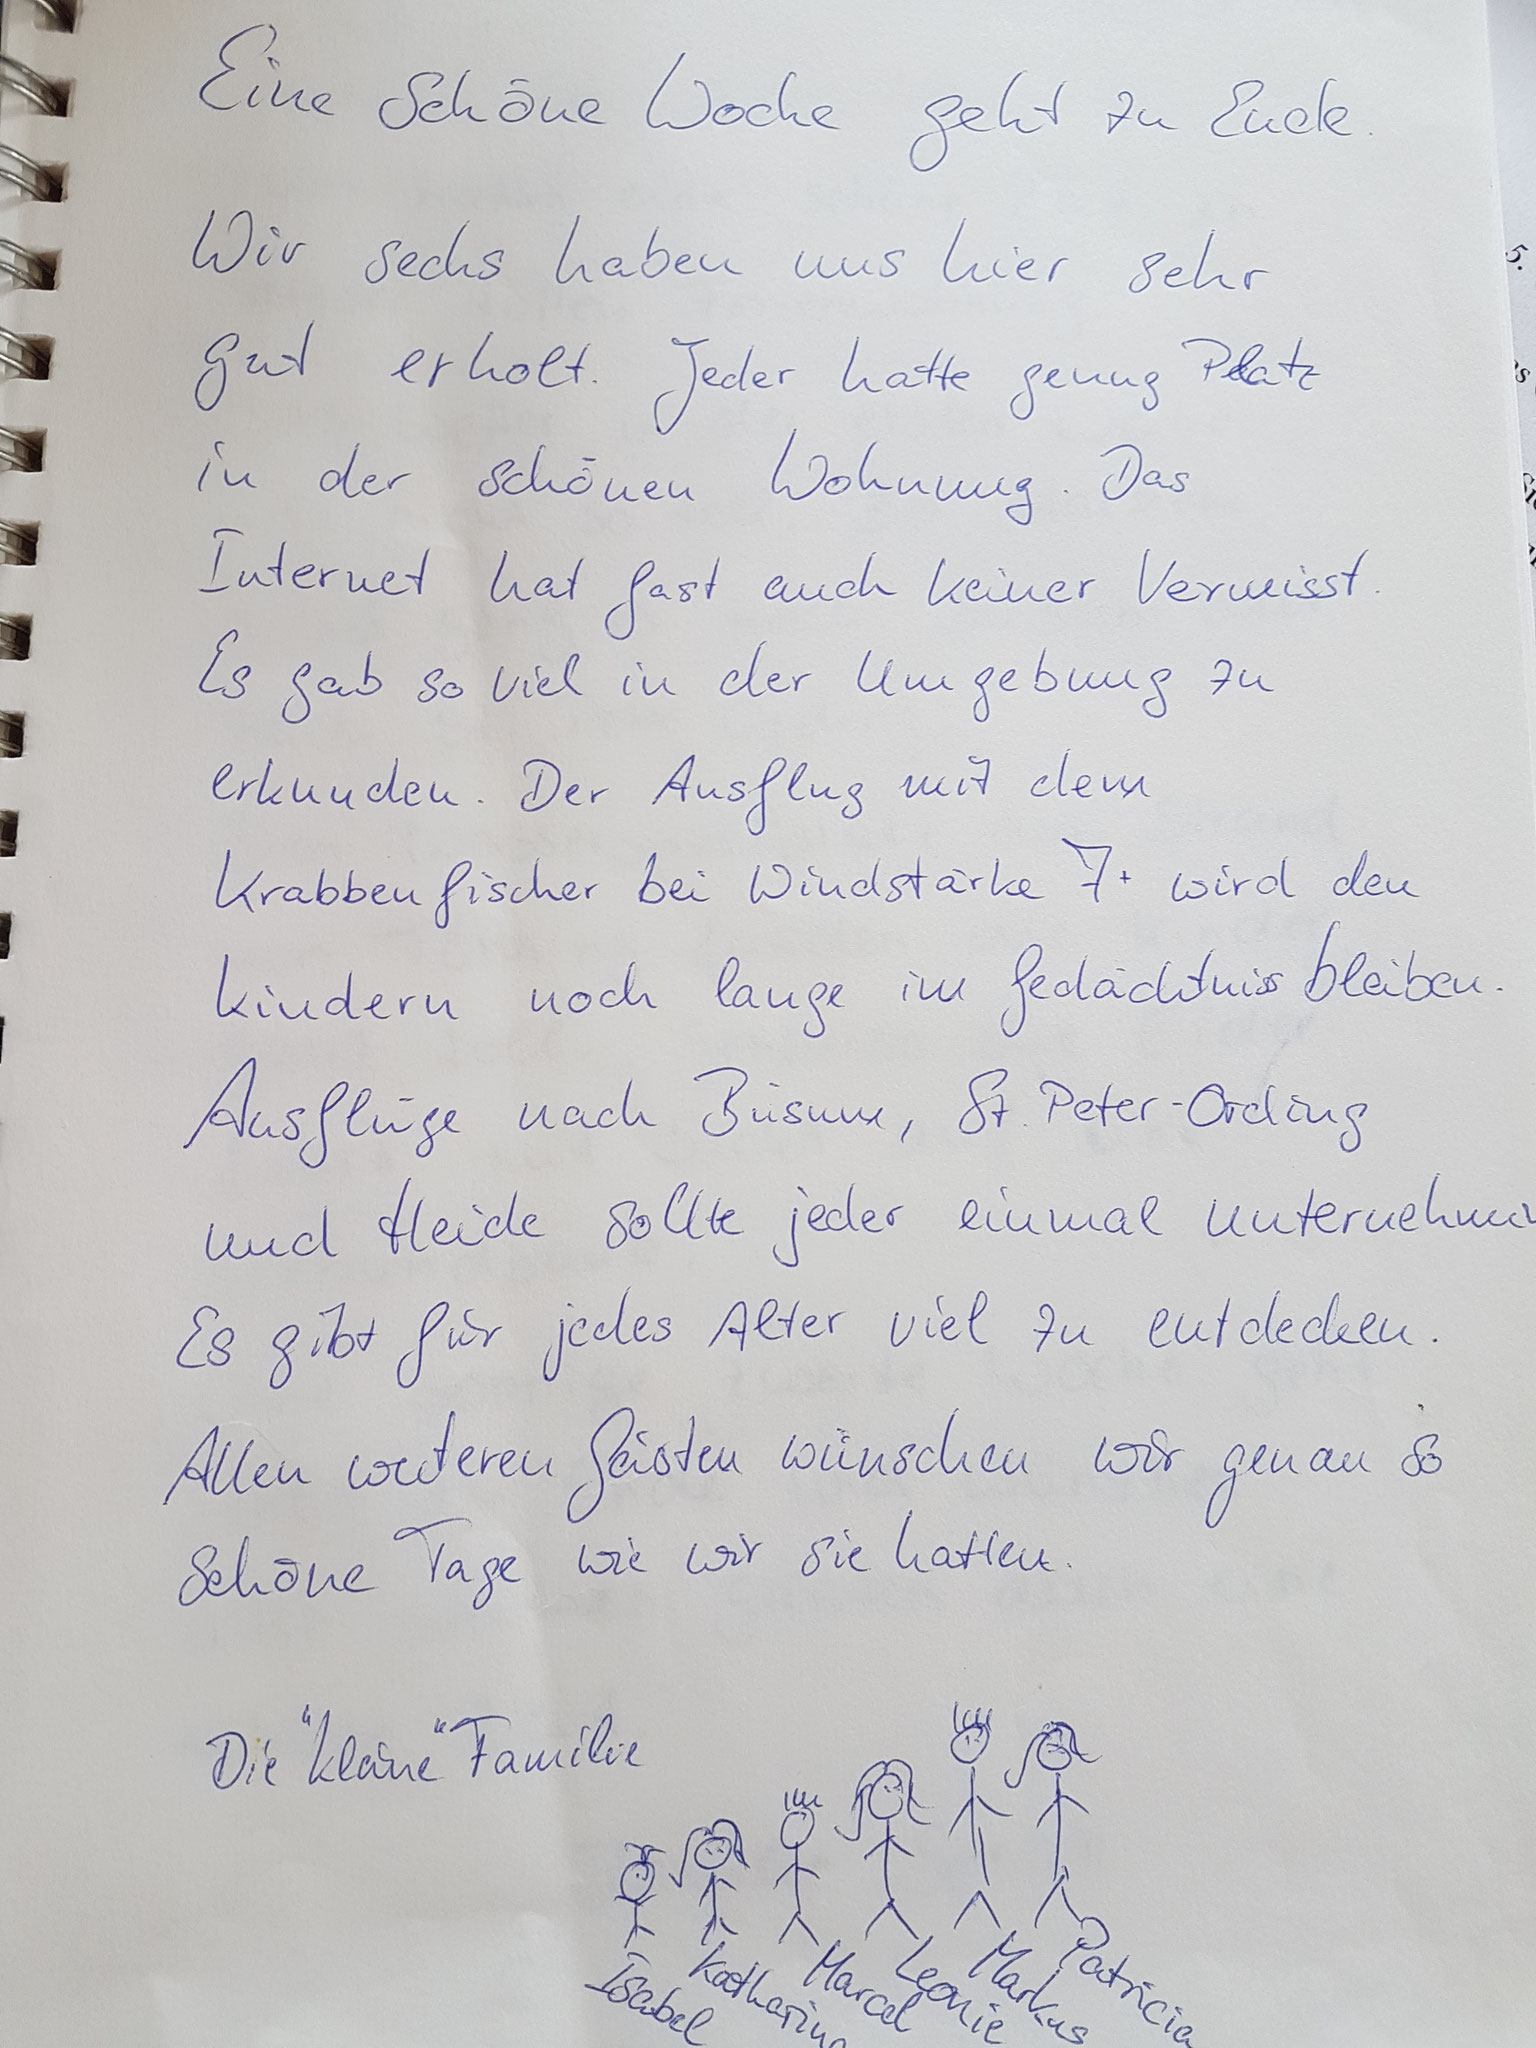 Eine schöne Woche geht zu Ende.
Wir sechs haben uns hier sehr
gut erholt. Jeder hatte genug Platz
in der schönen Wohnung. Das
Internet hat fast auch keiner Vermisst.
Es gab so viel in der Umgebung zu
erkunden. Der Ausflug mit dem
Krabbenfischer bei Windstärke 7+ wird den
Kindern noch lange im Gedächtniss bleiben.
Ausflüge nach Büsum, St. Peter-Ording
und Heide sollte jeder einmal
Es gibt für jedes Alter viel zu entdecken.
Allen weiteren Gästen wünschen wir genau so
schöne Tage wie wir sie hatten.
Die "kleine" Familie
Isabel
Katharina
Marcel
Leonie
Markus
Patricia